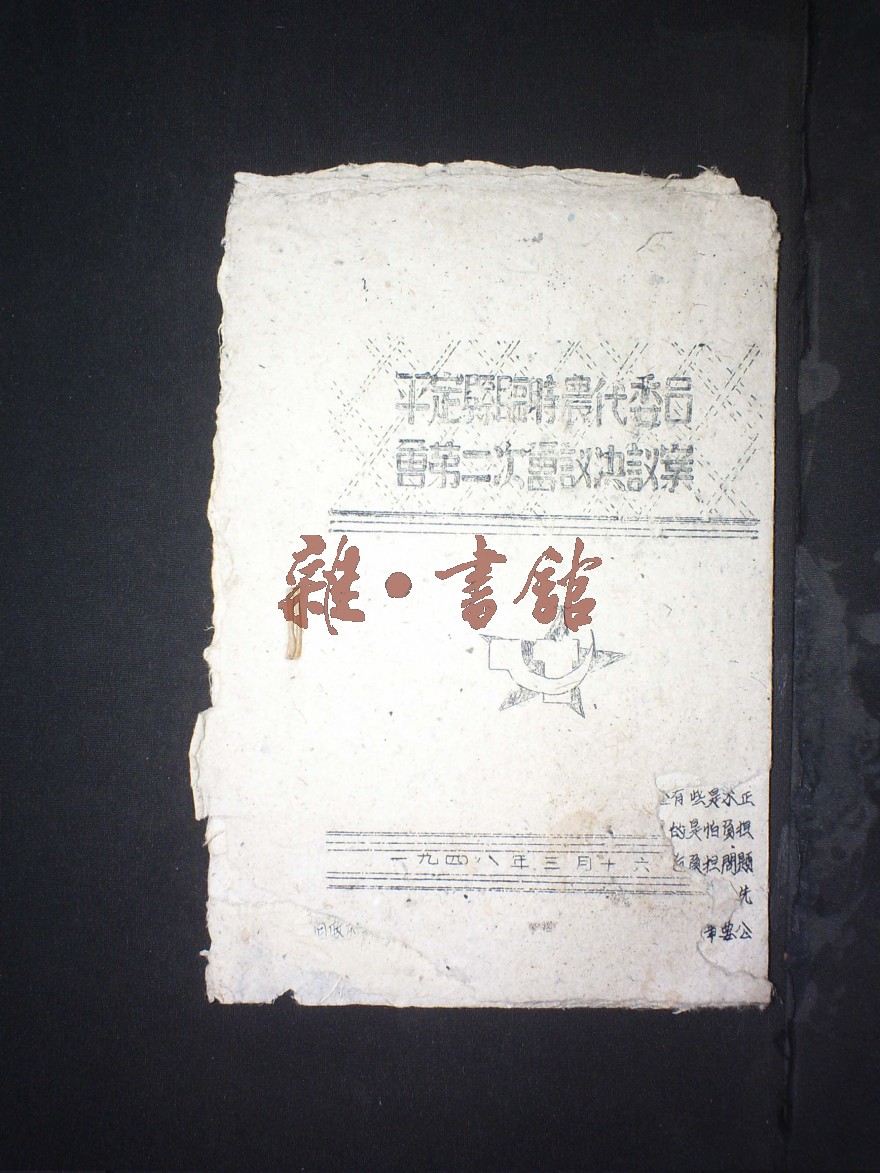 平定縣臨時農代委員
會第二次會議決議案
雜·書館
有些是不正
的是怕負担
負担問題
先
一九四八年三月十六
要公